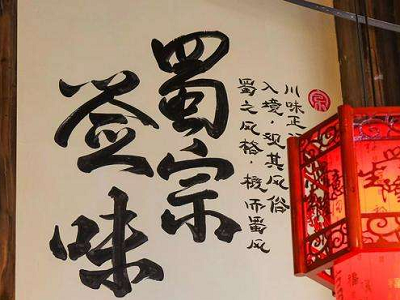 蜀宗
签味
川味正
入境·观其风俗
蜀之风格·概而蜀风